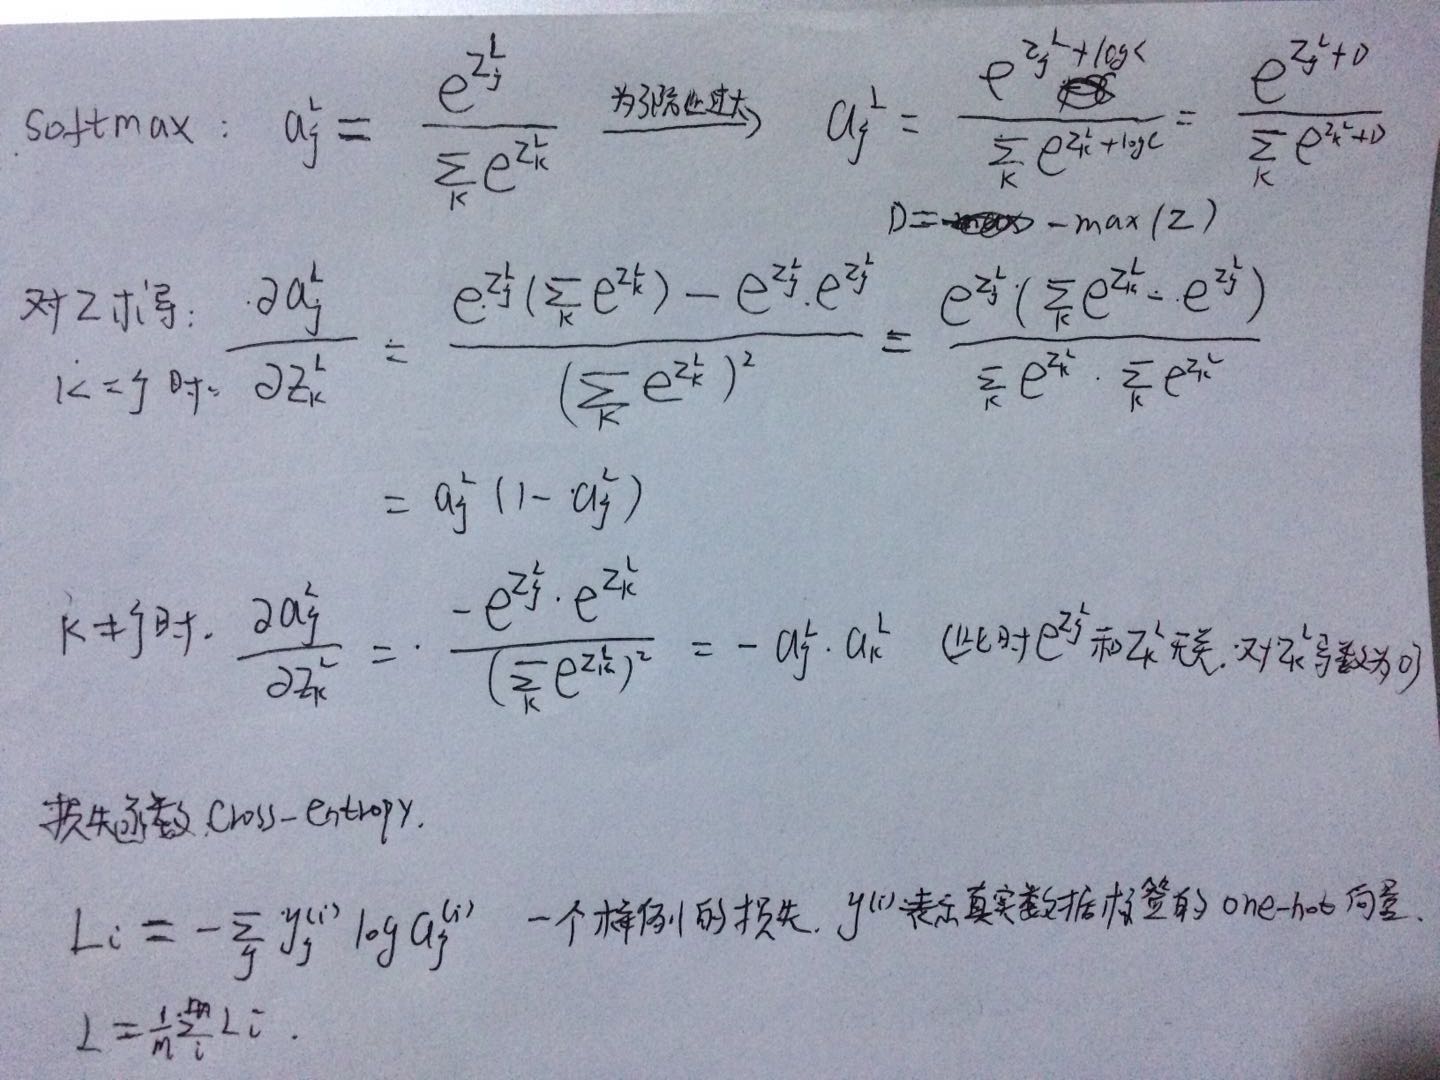 softmax: a_j^L = \frac{e^{z_j^L}}{\sum_k e^{z_k^L}} 为了防止过大→ a_j^L = \frac{e^{z_j^L + log C}}{\sum_k e^{z_k^L + log C}} = \frac{e^{z_j^L + D}}{\sum_k e^{z_k^L + D}}
D = - max(z)
对z求导: \frac{∂a_j^L}{∂z_k^L} = \frac{e^{z_j^L}(\sum_k e^{z_k^L}) - e^{z_j^L} · e^{z_j^L}}{(\sum_k e^{z_k^L})^2} = \frac{e^{z_j^L}(\sum_k e^{z_k^L} - e^{z_j^L})}{\sum_k e^{z_k^L} · \sum_k e^{z_k^L}}
k=j时.
= a_j^L (1 - a_j^L)
k≠j时. \frac{∂a_j^L}{∂z_k^L} = \frac{-e^{z_j^L} · e^{z_k^L}}{(\sum_k e^{z_k^L})^2} = - a_j^L · a_k^L (此时 e^{z_j^L} 和 z_k^L 无关. 对 z_k^L 导数为0)
损失函数 cross-entropy.
L_i = - \sum_j y_j^{(i)} log a_j^{(i)} 一个样例的损失. y^{(i)} 表示真实数据标签的 one-hot 向量.
L = \frac{1}{m} \sum_i^m L_i .